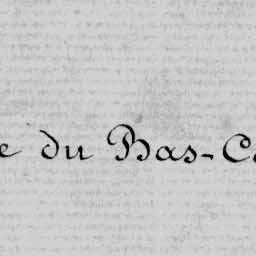 e du Bas-C